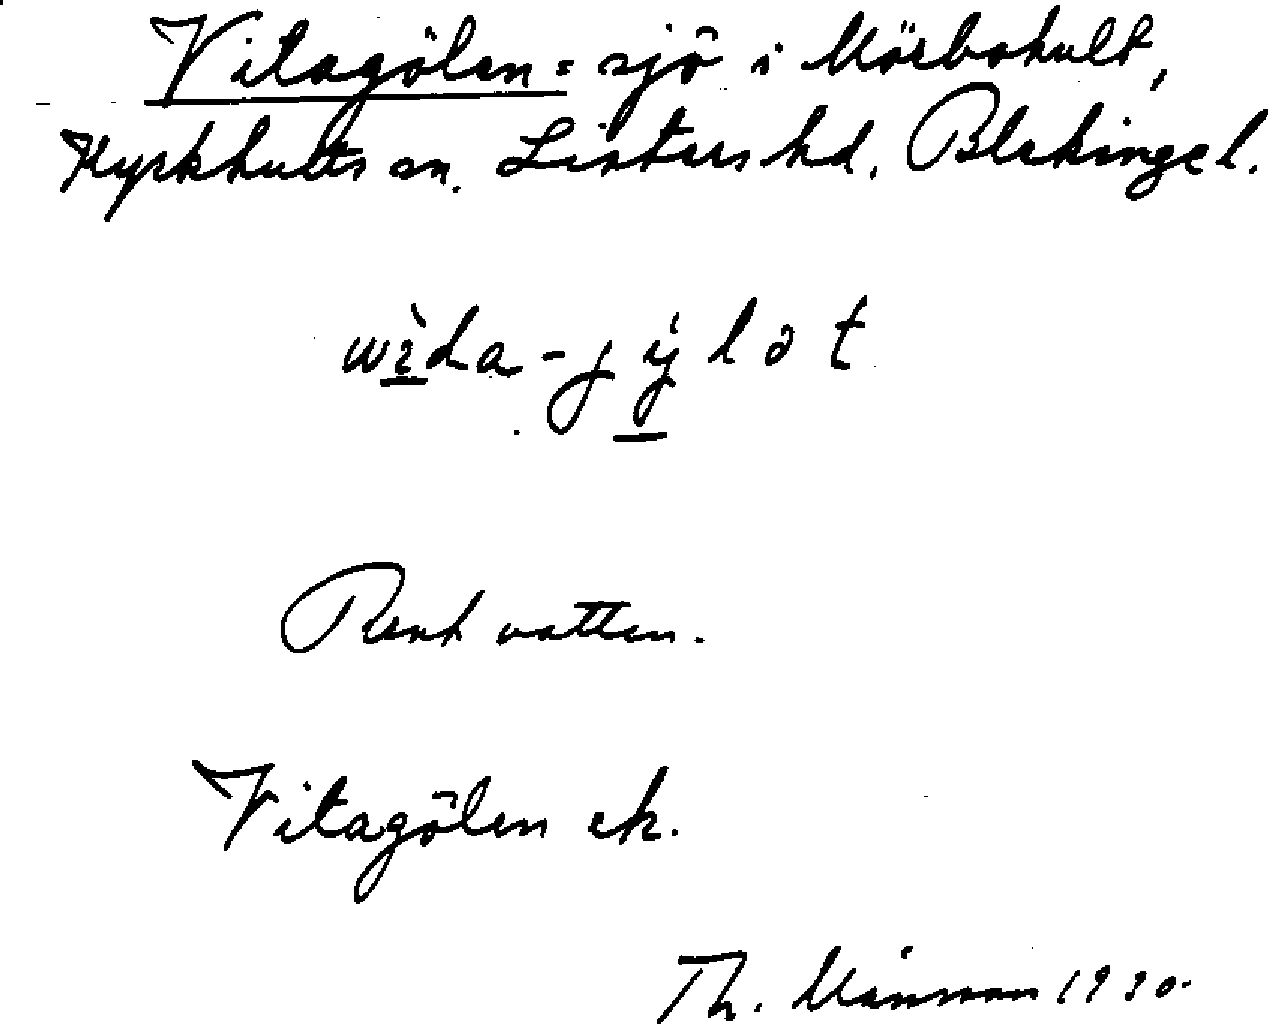 Vitagölen = sjö i Mörbohult,
Kyrkhults sn. Listers hd. Blekinge l.
wìda-jýlət
Rent vatten.
Vitagölen ek.
Th. Månsson 1930.